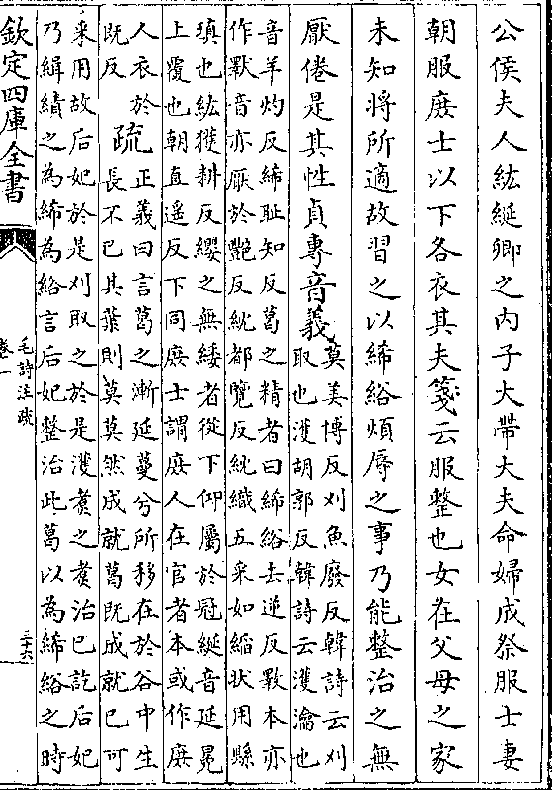 公侯夫人紘綖卿之内子大帶大夫命婦成祭服士妻
朝服庶士以下各衣其夫箋云服整也女在父母之家
未知將所適故習之以絺綌煩辱之事乃能整治之無
厭倦是其性貞專音義莫美博反刈魚廢反韓詩云刈
取也濩胡郭反韓詩云濩瀹也
音羊灼反絺恥知反葛之精者曰絺綌去逆反斁本亦
作厭音亦厭於豔反紞都覽反紞織五采如縚状用懸
瑱也紘獲耕反纓之無緌者從下仰屬於冠綖音延冕
上覆也朝直遥反下同庶士謂庶人在官者本或作庶
人衣於
既反
疏正義曰言葛之漸延蔓兮所移在於谷中生
長不已其葉則莫莫然成就葛既成就已可
采用故后妃於是刈取之於是濩煑之煑治已訖后妃
乃緝績之為絺為綌言后妃整治此葛以為絺綌之時
欽定四庫全書
毛詩注疏
卷一
三十六